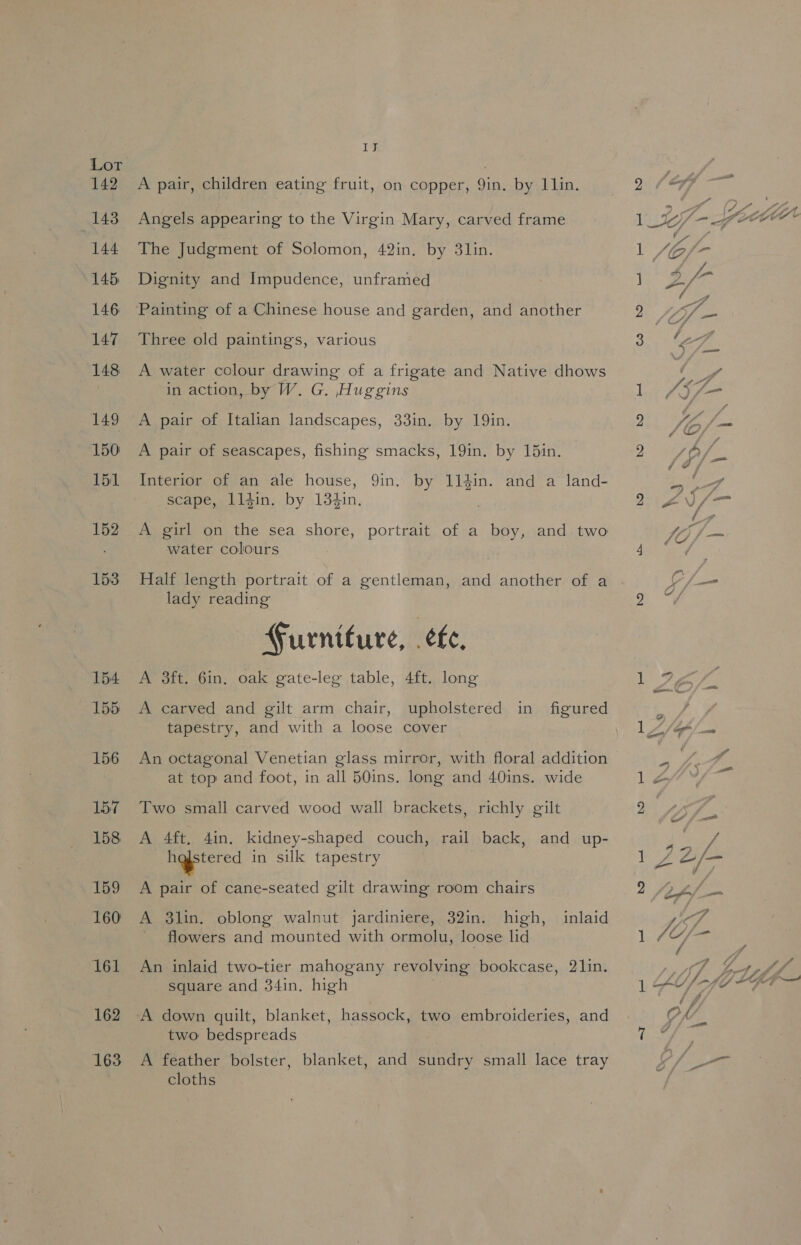 11
Lot
142 A pair, children eating fruit, on copper, 9in. by 11in. 2
143 Angels appearing to the Virgin Mary, carved frame 1
144 The Judgment of Solomon, 42in. by 31in. 1
145 Dignity and Impudence, unframed 1 2/-
146 Painting of a Chinese house and garden, and another 2
147 Three old paintings, various 3
148 A water colour drawing of a frigate and Native dhows
in action, by W. G. Huggins 1
149 A pair of Italian landscapes, 33in. by 19in. 2
150 A pair of seascapes, fishing smacks, 19in. by 15in. 2
151 Interior of an ale house, 9in. by 11½in. and a land-
scape, 11½in. by 13½in. 2
152 A girl on the sea shore, portrait of a boy, and two
water colours 4
153 Half length portrait of a gentleman, and another of a
lady reading 2
Furniture, etc.
154 A 3ft. 6in. oak gate-leg table, 4ft. long 1
155 A carved and gilt arm chair, upholstered in figured
tapestry, and with a loose cover 1
156 An octagonal Venetian glass mirror, with floral addition
at top and foot, in all 50ins. long and 40ins. wide 1
157 Two small carved wood wall brackets, richly gilt 2
158 A 4ft. 4in. kidney-shaped couch, rail back, and up-
holstered in silk tapestry 1
159 A pair of cane-seated gilt drawing room chairs 2
160 A 31in. oblong walnut jardiniere, 32in. high, inlaid
flowers and mounted with ormolu, loose lid 1
161 An inlaid two-tier mahogany revolving bookcase, 21in.
square and 34in. high 1
162 A down quilt, blanket, hassock, two embroideries, and
two bedspreads 7
163 A feather bolster, blanket, and sundry small lace tray
cloths